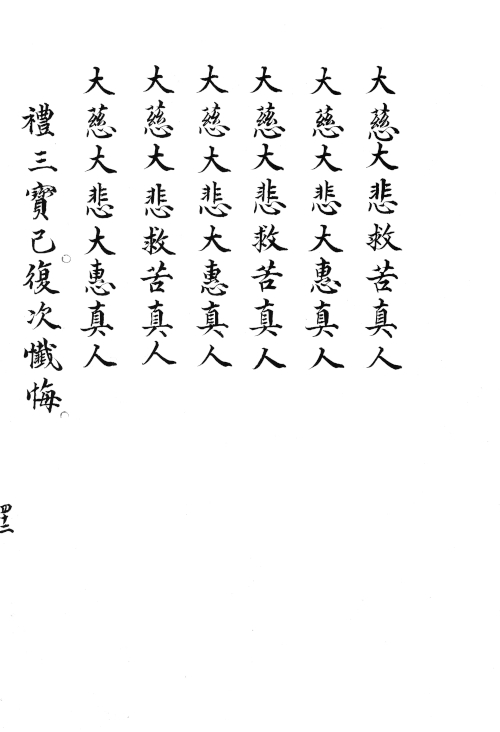 大慈大悲救苦真人
大慈大悲大惠真人
大慈大悲救苦真人
大慈大悲大惠真人
大慈大悲救苦真人
大慈大悲大惠真人
禮三寶已。復次懺悔。
四十二